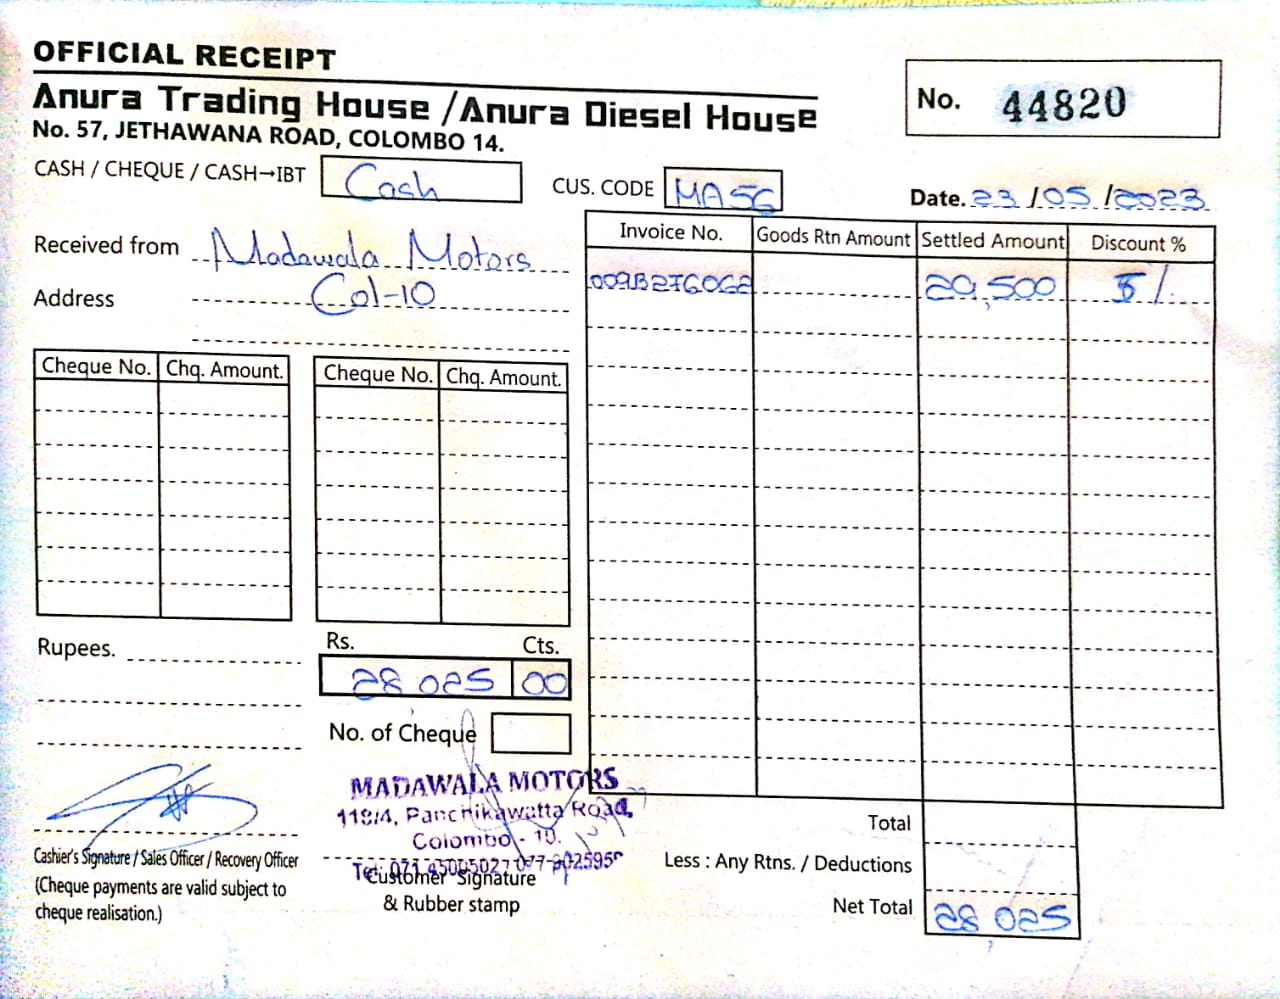 OFFICIAL RECEIPT
Anura Trading House /Anura Diesel House
No. 57, JETHAWANA ROAD, COLOMBO 14.
No. 44820
CASH / CHEQUE / CASH→IBT Cash
CUS. CODE MA56
Date. 23/05/2023
Received from Madawala Motors
Address Col-10
Invoice No. Goods Rtn Amount Settled Amount Discount %
009B276062 29,500 5%
Cheque No. Chq. Amount. Cheque No. Chq. Amount.
Rupees.
Rs. Cts.
28,025 00
No. of Cheque
MADAWALA MOTORS
118/4, Panchikawatta Road,
Colombo - 10.
Tel: 071 4500502
Cashier's Signature / Sales Officer / Recovery Officer
(Cheque payments are valid subject to
cheque realisation.)
Customer Signature
& Rubber stamp
Total
Less : Any Rtns. / Deductions
Net Total 28,025